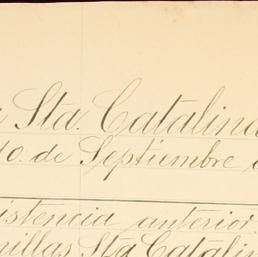 Sta. Catalina
10. de Septiembre
istencia anterior
illas Sta Catalin